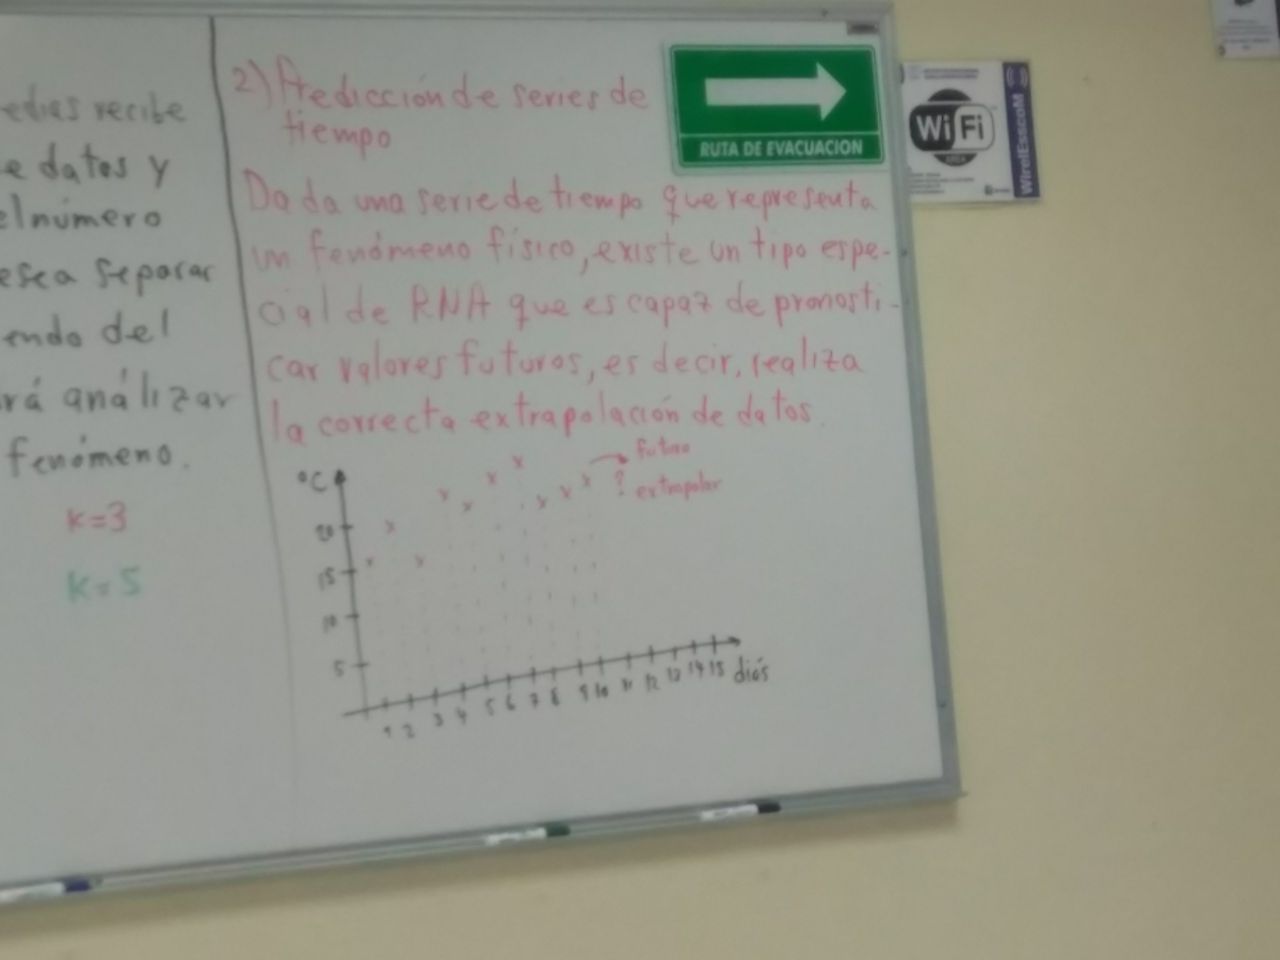 edias recibe
e datos y
el número
esea separar
endo del
rá análizar
fenómeno.
K=3
K=5
2) Predicción de series de
tiempo
Dada una serie de tiempo que representa
un fenómeno físico, existe un tipo espe-
cial de RNA que es capaz de pronosti-
car valores futuros, es decir, realiza
la correcta extrapolación de datos.
°C
futuro
? extrapolar
20
15
10
5
1 2 3 4 5 6 7 8 9 10 11 12 13 14 15 días
RUTA DE EVACUACION
WiFi
AREA
WirelEsscoM